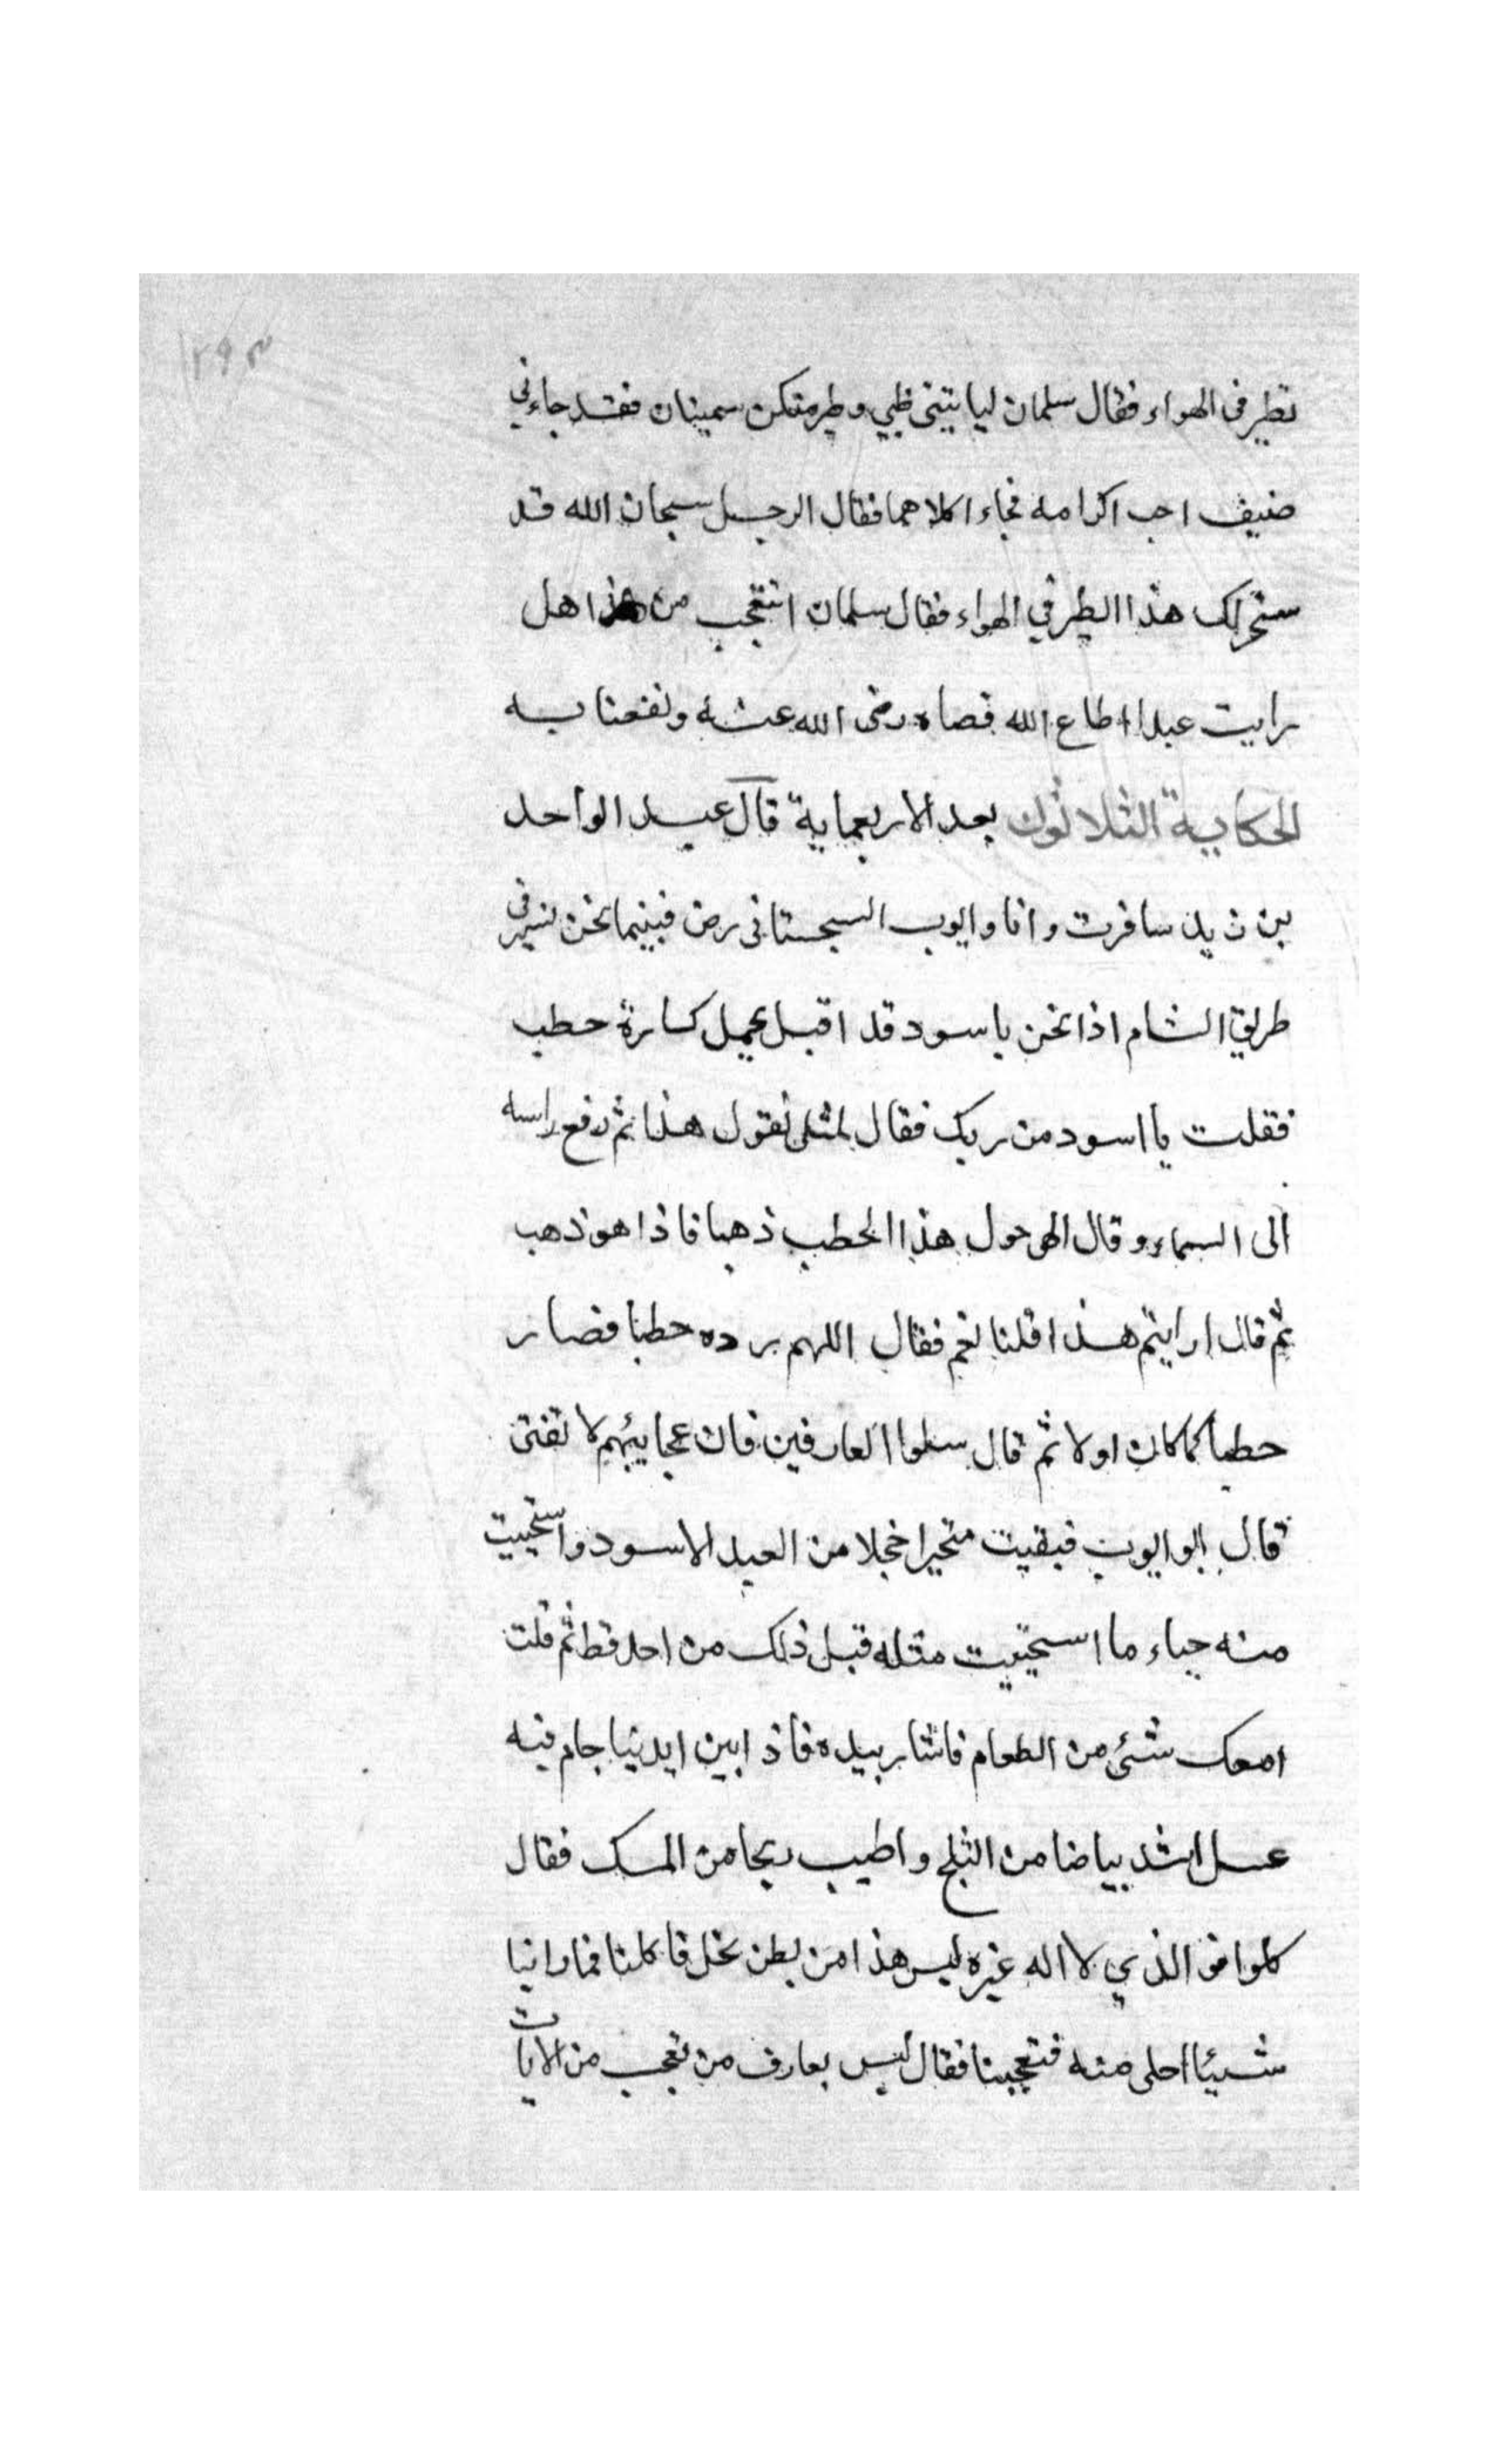 ٢٩٣
تطير فى الهواء فقال سلمان ليايتنى ظبي وطير منكن سمينان فقد جاءني
ضيف احب اكرامه فجاء اكلاهما فقال الرجل سبحان الله قد
سخر لك هذا الطير في الهواء فقال سلمان اتتعجب من هذا هل
رايت عبدا اطاع الله فعصاه رضى الله عنه ونفعنا به
الحكاية الثلاثون بعد الاربعماية قال عبد الواحد
بن زيد سافرت وانا وايوب السجستانى رض فبينما نحن نسير فى
طريق الشام اذا نحن باسود قد اقبل يحمل كسارة حطب
فقلت يا اسود من ربك فقال لمثلى تقول هذا ثم رفع راسه
الى السماء وقال الهى حول هذا الحطب ذهبا فاذا هو ذهب
ثم قال ارايتم هذا قلنا نعم فقال اللهم رده حطبا فصار
حطبا كما كان اولا ثم قال سلوا العارفين فان عجايبهم لا تفنى
قال ابو ايوب فبقيت متحيرا خجلا من العبد الاسود واستحييت
منه حياء ما استحييت مثله قبل ذلك من احد قط ثم قلت
امعك شئ من الطعام فاشار بيده فاذا بين ايدينا جام فيه
عسل اشد بياضا من الثلج واطيب ريحا من المسك فقال
كلوا فو الذي لا اله غيره ليس هذا من بطن نحل فاكلنا فما راينا
شيئا احلى منه فتعجبنا فقال ليس بعارف من تعجب من الايات